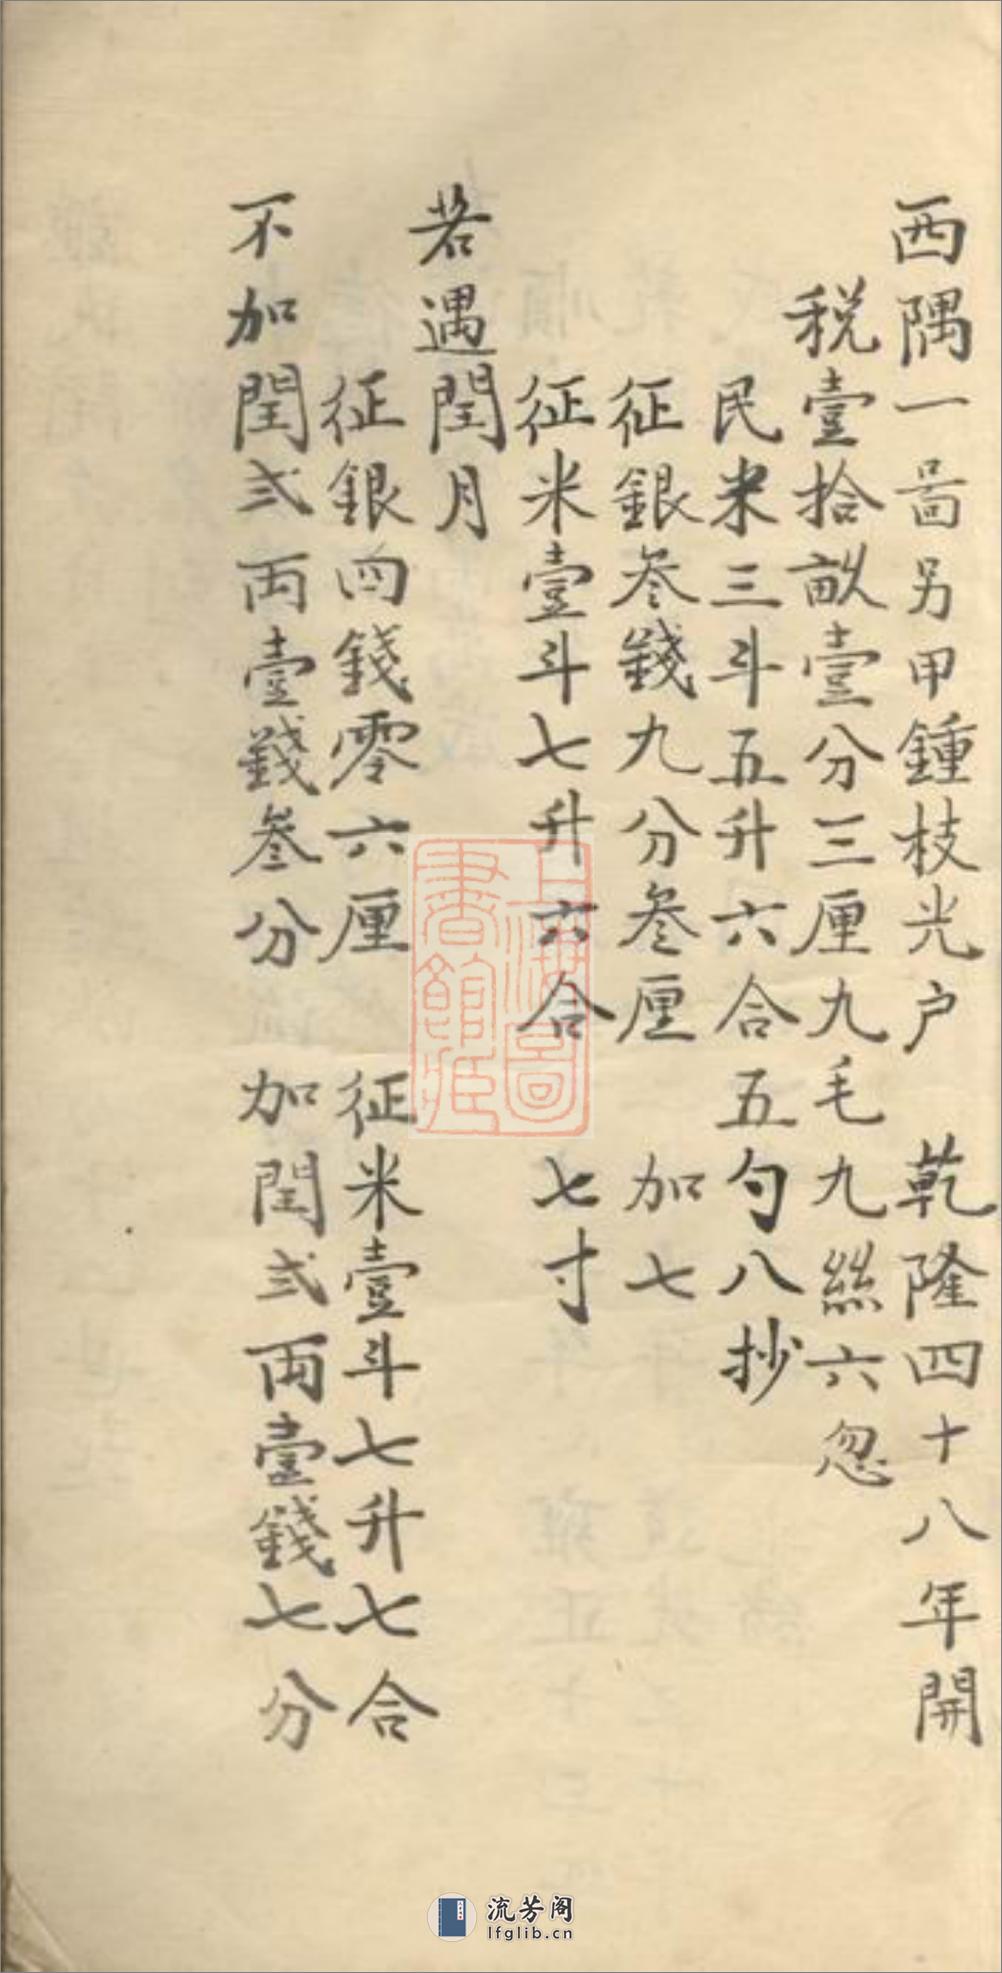 西隅一啚另甲鍾枝光户　乾隆四十八年開
税壹拾畝壹分三厘九毛九絲六忽
民米三斗五升六合五勺八抄
征銀叁錢九分叁厘　加七
征米壹斗七升六合　七寸
若遇閏月
征銀四錢零六厘　征米壹斗七升七合
不加閏弍両壹錢叁分　加閏弍両壹錢七分
上海圖書館藏
流芳阁
lfglib.cn